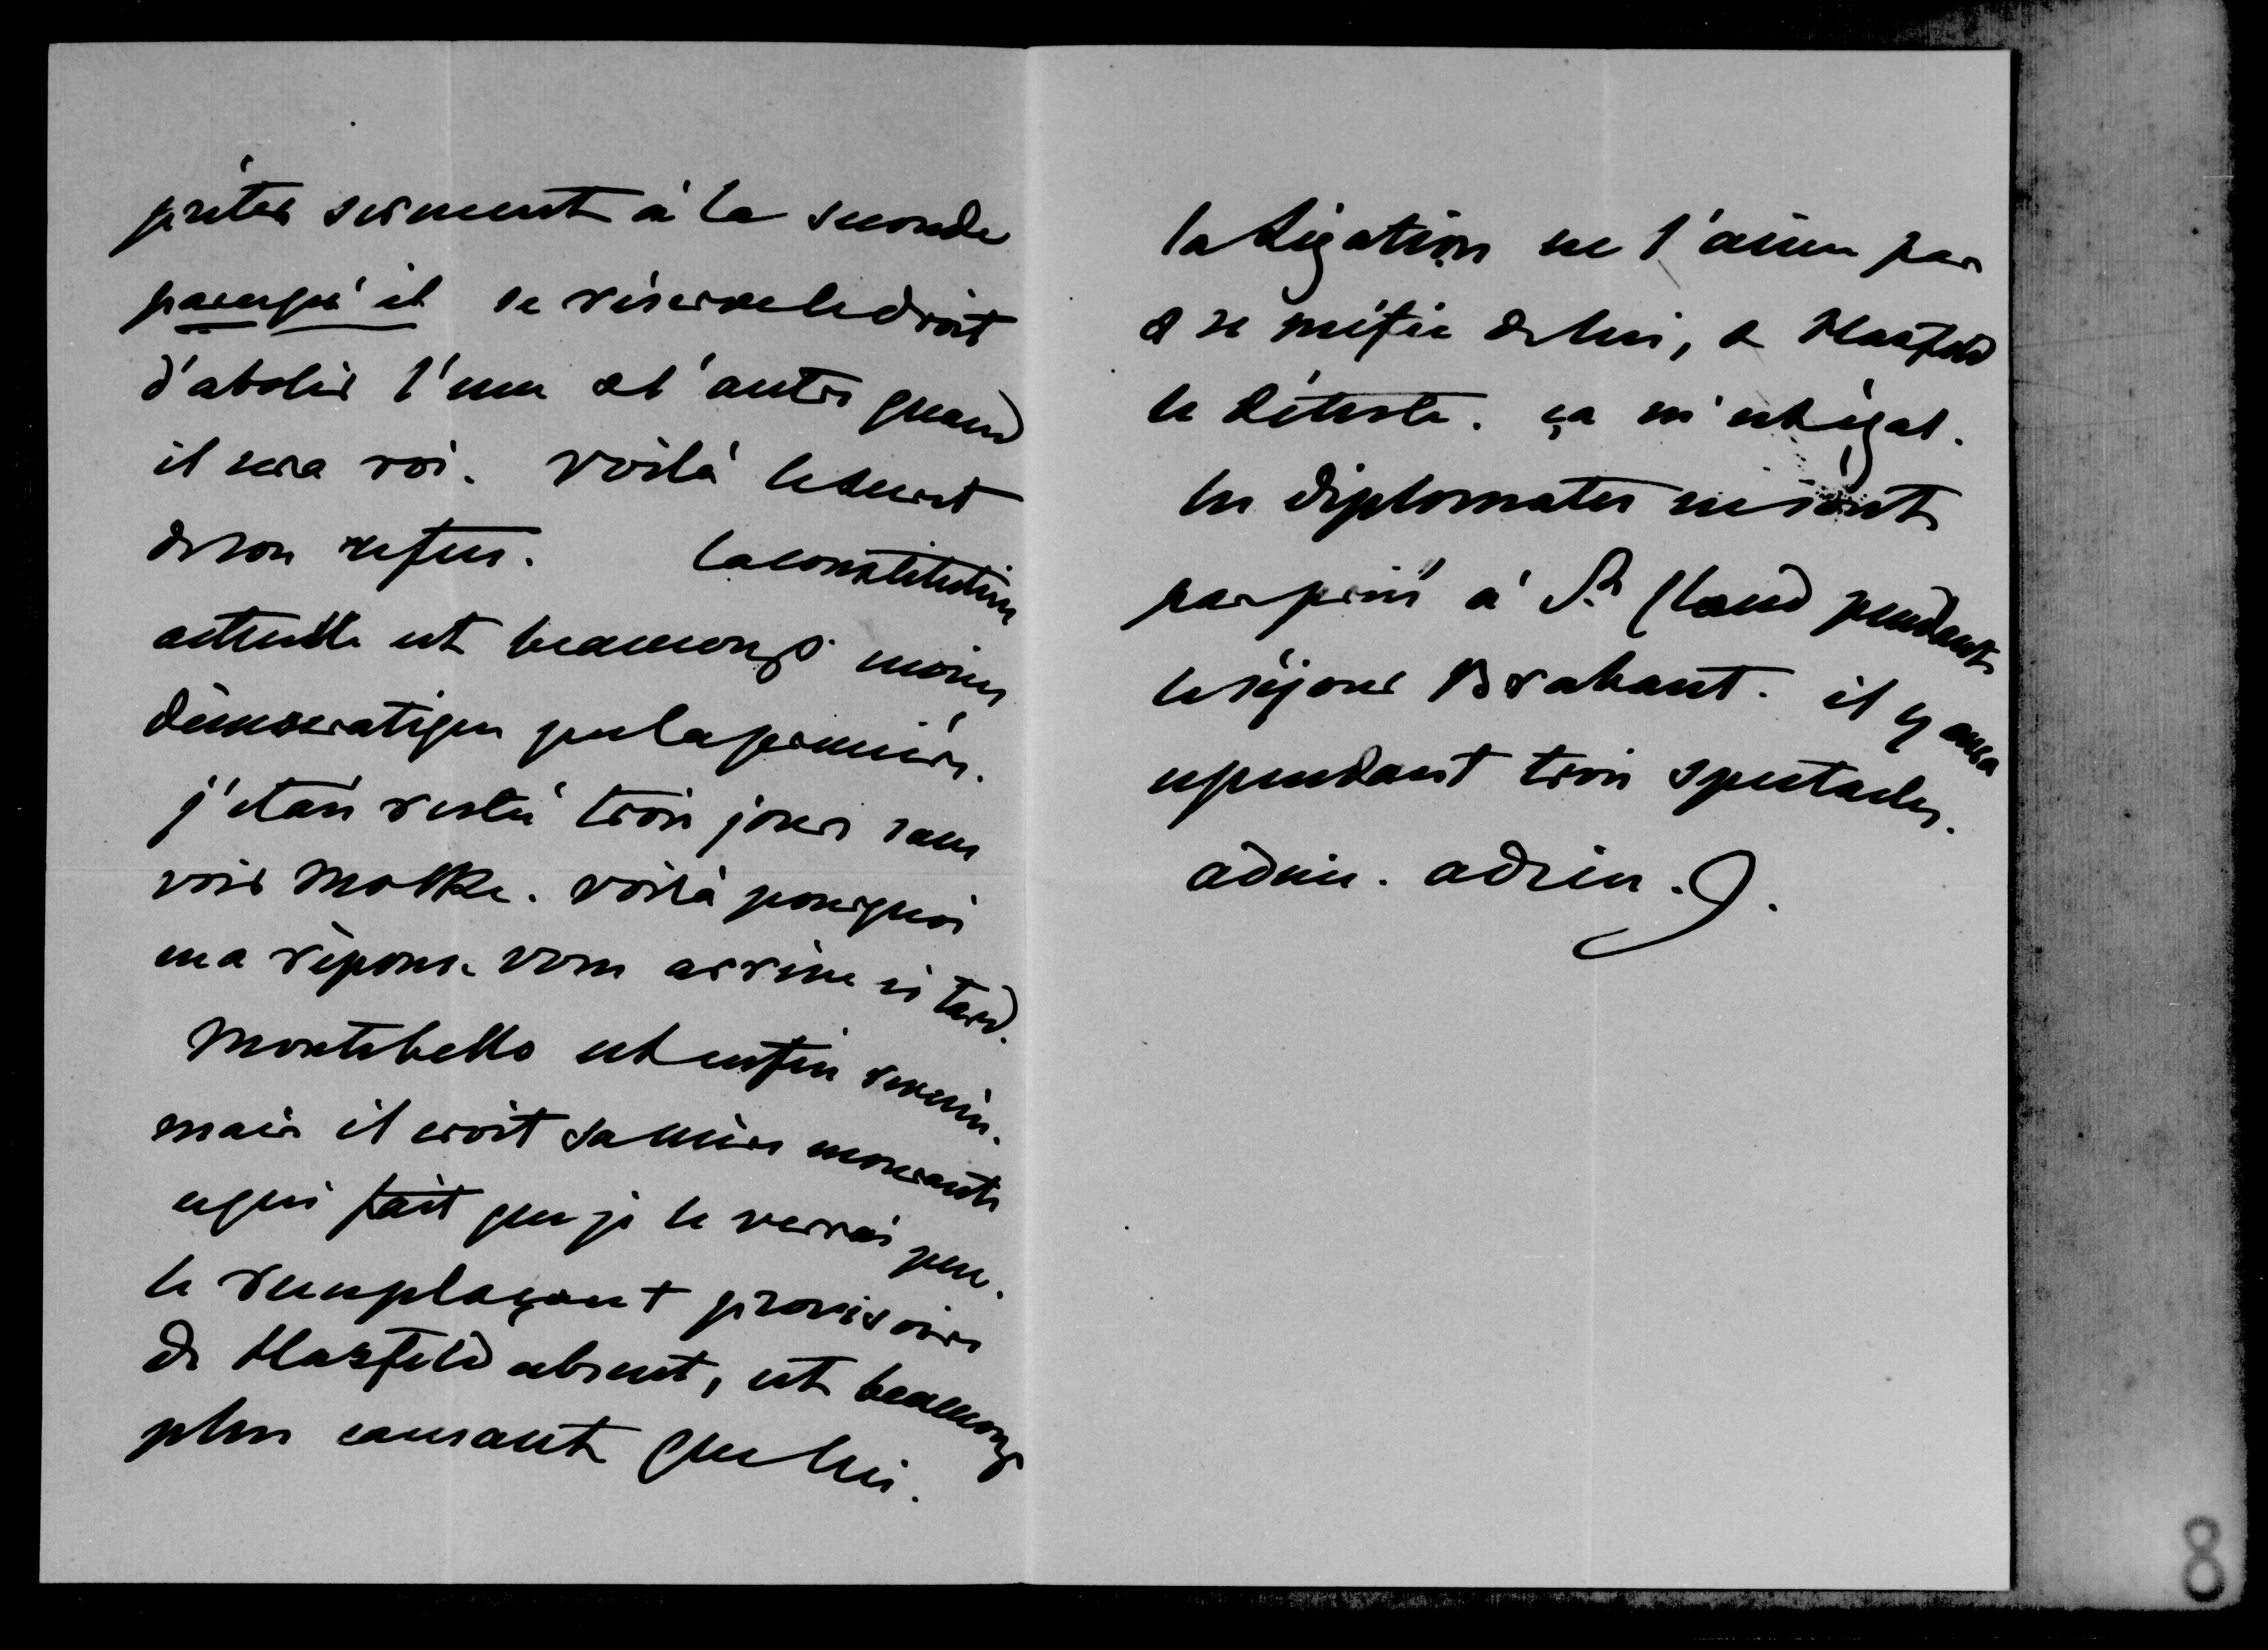 prêter serment à la seconde
parcequ'il se réserve le droit
d'abolir l'une et l'autre quand
il sera roi. Voilà le secret
de son refus. la constitution
actuelle est beaucoup moins
démocratique que la première.
j'étais restée trois jours sans
voir Molke. voilà pourquoi
ma réponse vous arrive si tard.
Montebello est enfin revenu.
mais il croit sa mère mourante
ce qui fait que je le verrai peu.
le remplaçant provisoire
de Hatzfeld absent, est beaucoup
plus causant que lui.
la légation ne l'aime pas
& se méfie de lui, & Hatzfeld
le déteste. ça m'est égal.
les diplomates ne sont
pas priés à St Cloud pendant
le séjour Brabant. il y aura
cependant trois spectacles.
adieu. adieu.
8